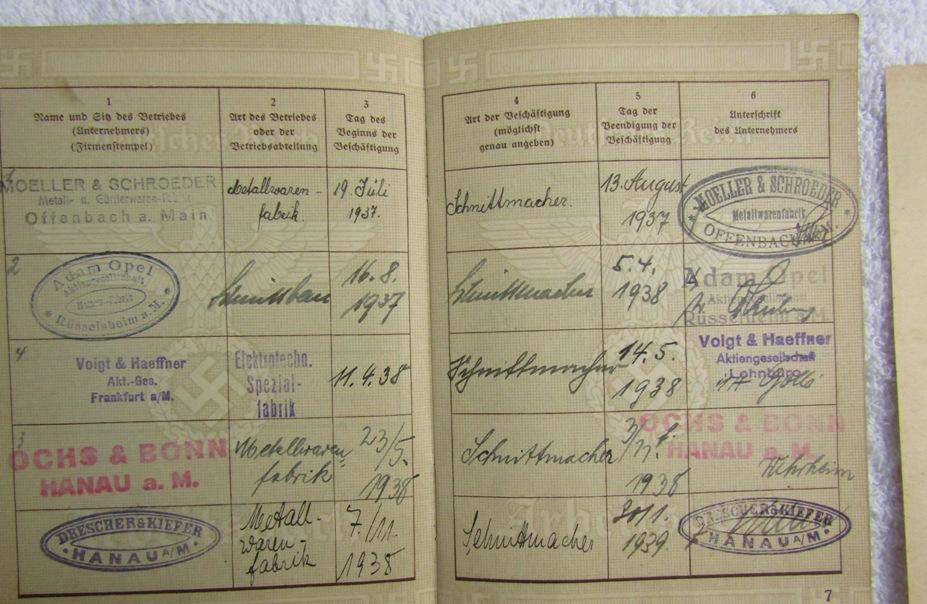 1
Name und Sitz des Betriebes
(Unternehmers)
(Firmenstempel)
2
Art des Betriebes
oder der
Betriebsabteilung
3
Tag des
Beginns der
Beschäftigung
4
Art der Beschäftigung
(möglichst
genau angeben)
5
Tag der
Beendigung der
Beschäftigung
6
Unterschrift
des Unternehmers
MOELLER & SCHROEDER
Metall- u.
Offenbach a. Main
Metallwaren-
fabrik.
19. Juli
1937.
Schnittmacher.
13. August
1937
MOELLER & SCHROEDER
Metallwarenfabrik
OFFENBACH
2
Adam Opel
Aktiengesellschaft
Rüsselsheim a. M.
Schnittbau
16. 8.
1937
Schnittmacher
5. 4.
1938
Adam Opel
Aktiengesellschaft
Rüsselsheim a. M.
4
Voigt & Haeffner
Akt.-Ges.
Frankfurt a/M.
Elektrotechn.
Spezial-
fabrik
11. 4. 38
Schnittmacher
14. 5.
1938
Voigt & Haeffner
Aktiengesellschaft
Lohnbüro
3
OCHS & BONN
HANAU a. M.
Metallwaren
fabrik
23/5.
1938
Schnittmacher
1938
OCHS & BONN
HANAU a. M.
DRESCHER & KIEFER
HANAU A/M.
Metall-
waren-
fabrik
7/11.
1938
Schnittmacher
1939.
DRESCHER & KIEFER
HANAU A/M.
7